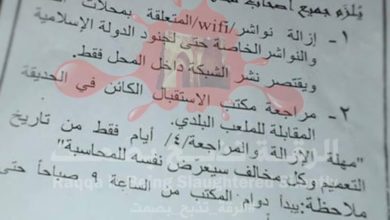 يلزم جميع أصحاب
١- إزالة نواشر/wifi/المتعلقة بمحلات
والنواشر الخاصة حتى لجنود الدولة الإسلامية
ويقتصر نشر الشبكة داخل المحل فقط.
٢- مراجعة مكتب الاستقبال الكائن في الحديقة
المقابلة للملعب البلدي.
"مهلة الإزالة و المراجعة/٤/ أيام فقط من تاريخ
التعميم وكل مخالف سيعرض نفسه للمحاسبة"
ملاحظة: يبدأ دوام المكتب من الساعة ٩ صباحاً حتى
الرقة تذبح بصمت
Raqqa is Being Slaughtered Silently
الرقة تذبح بصمت